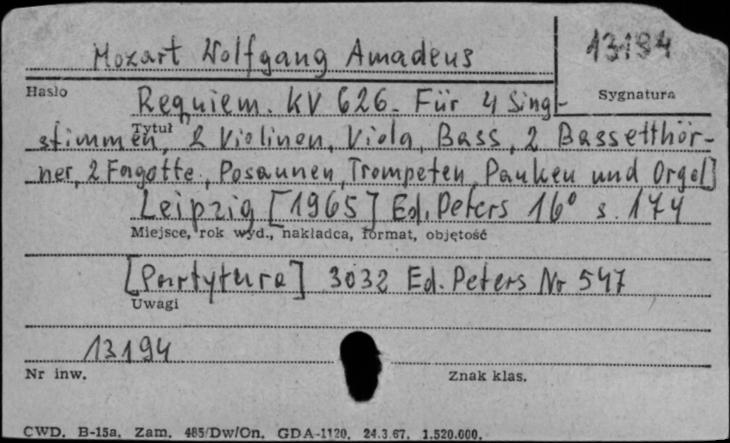 Mozart Wolfgang Amadeus
13194
Hasło
Sygnatura
Requiem. KV 626. Für 4 Sing-
Tytuł
stimmen, 2 Violinen, Viola, Bass, 2 Bassetthör-
ner, 2 Fagotte, Posaunen, Trompeten, Pauken und Orgel]
Leipzig [1965] Ed. Peters 16° s. 174
Miejsce, rok wyd., nakładca, format, objętość
[Partytura] 3032 Ed. Peters Nr 547
Uwagi
13194
Nr inw.
Znak klas.
CWD. B-15a, Zam. 485/Dw/On. GDA-1120. 24.3.67. 1.520.000.